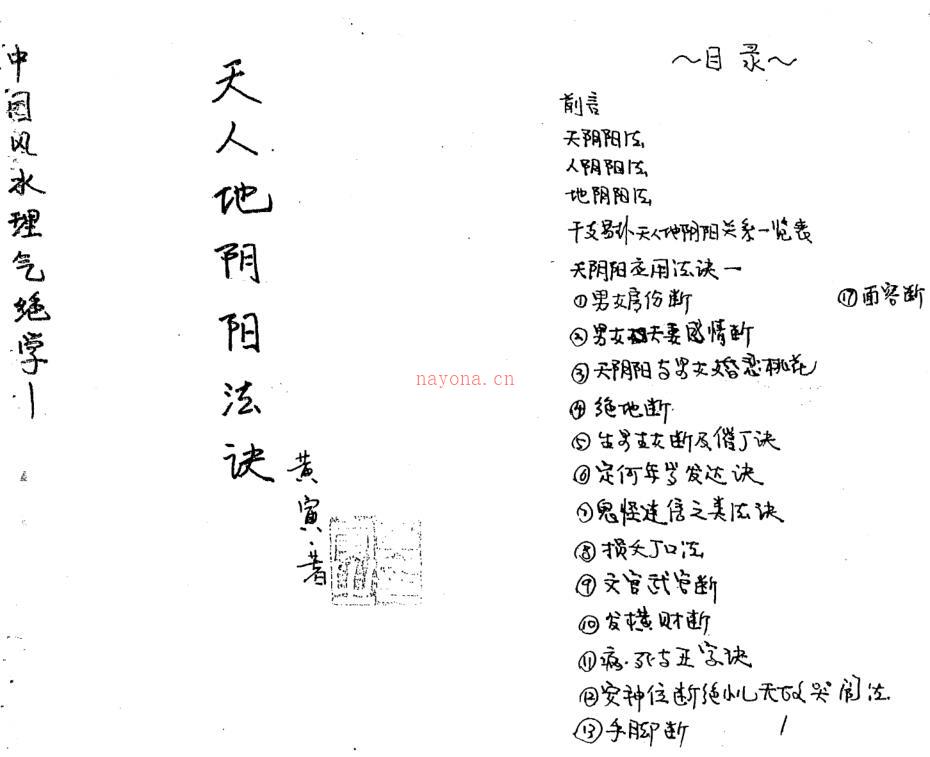 中国风水理气绝学1
天人地阴阳法诀
黄寅·著
nayona.cn
~目录~
前言
天阴阳法
人阴阳法
地阴阳法
干支易卦天人地阴阳关系一览表
天阴阳应用法诀一
①男女房份断
②男女夫妻感情断
③天阴阳与男女婚恋桃花
④绝地断
⑤生男生女断及催丁诀
⑥定何年岁发达诀
⑦鬼怪迷信之类法诀
⑧损丁口法
⑨文官武官断
⑩发横财断
⑪病.死与五字诀
⑫安神位断绝小儿无故哭闹法
⑬手脚断
⑰面容断
1